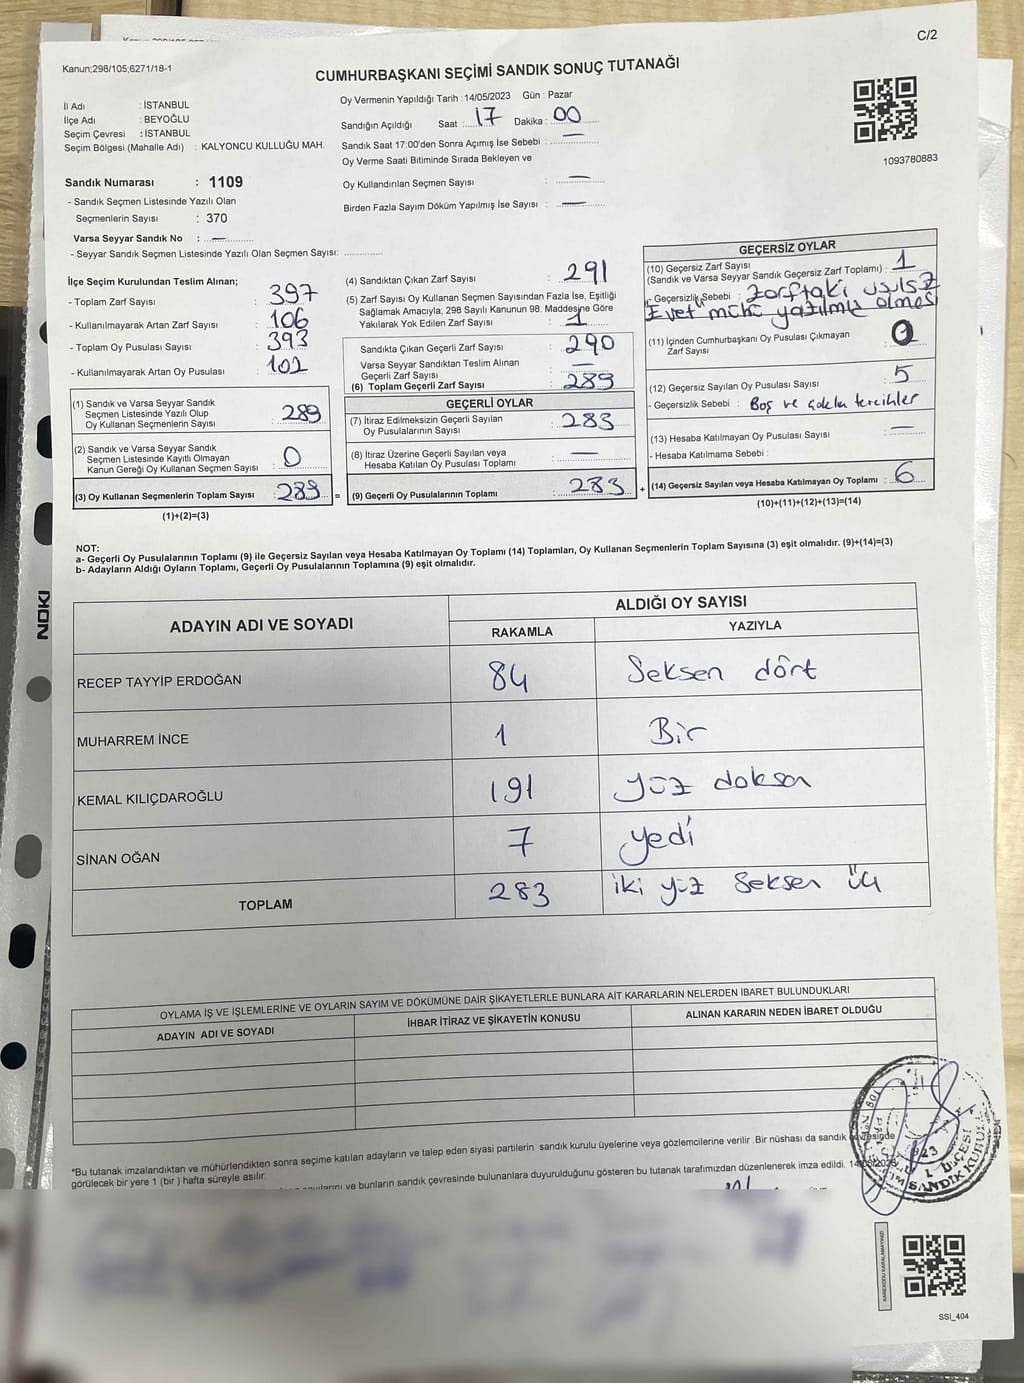 C/2
Kanun;298/105;6271/18-1
CUMHURBAŞKANI SEÇİMİ SANDIK SONUÇ TUTANAĞI
Oy Vermenin Yapıldığı Tarih : 14/05/2023 Gün : Pazar
İl Adı : İSTANBUL
İlçe Adı : BEYOĞLU
Seçim Çevresi : İSTANBUL
Seçim Bölgesi (Mahalle Adı) : KALYONCU KULLUĞU MAH.
Sandığın Açıldığı Saat : 17 Dakika : 00
Sandık Saat 17:00'den Sonra Açımış İse Sebebi : —
Oy Verme Saati Bitiminde Sırada Bekleyen ve
Oy Kullandırılan Seçmen Sayısı : —
Birden Fazla Sayım Döküm Yapılmış İse Sayısı : —
1093780883
Sandık Numarası : 1109
- Sandık Seçmen Listesinde Yazılı Olan
Seçmenlerin Sayısı : 370
Varsa Seyyar Sandık No : —
- Seyyar Sandık Seçmen Listesinde Yazılı Olan Seçmen Sayısı:
İlçe Seçim Kurulundan Teslim Alınan;
- Toplam Zarf Sayısı : 397
- Kullanılmayarak Artan Zarf Sayısı : 106
- Toplam Oy Pusulası Sayısı : 393
- Kullanılmayarak Artan Oy Pusulası : 102
(1) Sandık ve Varsa Seyyar Sandık
Seçmen Listesinde Yazılı Olup
Oy Kullanan Seçmenlerin Sayısı : 289
(2) Sandık ve Varsa Seyyar Sandık
Seçmen Listesinde Kayıtlı Olmayan
Kanun Gereği Oy Kullanan Seçmen Sayısı : 0
(3) Oy Kullanan Seçmenlerin Toplam Sayısı : 289 =
(1)+(2)=(3)
(4) Sandıktan Çıkan Zarf Sayısı : 291
(5) Zarf Sayısı Oy Kullanan Seçmen Sayısından Fazla İse, Eşitliği
Sağlamak Amacıyla; 298 Sayılı Kanunun 98. Maddesine Göre
Yakılarak Yok Edilen Zarf Sayısı : 1
Sandıkta Çıkan Geçerli Zarf Sayısı : 290
Varsa Seyyar Sandıktan Teslim Alınan
Geçerli Zarf Sayısı : —
(6) Toplam Geçerli Zarf Sayısı : 289
GEÇERLİ OYLAR
(7) İtiraz Edilmeksizin Geçerli Sayılan
Oy Pusulalarının Sayısı : 283
(8) İtiraz Üzerine Geçerli Sayılan veya
Hesaba Katılan Oy Pusulası Toplamı : —
(9) Geçerli Oy Pusulalarının Toplamı : 283 +
GEÇERSİZ OYLAR
(10) Geçersiz Zarf Sayısı
(Sandık ve Varsa Seyyar Sandık Geçersiz Zarf Toplamı) : 1
- Geçersizlik Sebebi : Zarftaki usulsüz
"Evet" mührü olması
(11) İçinden Cumhurbaşkanı Oy Pusulası Çıkmayan
Zarf Sayısı : 0
(12) Geçersiz Sayılan Oy Pusulası Sayısı : 5
- Geçersizlik Sebebi : Boş ve çoklu tercihler
(13) Hesaba Katılmayan Oy Pusulası Sayısı : —
- Hesaba Katılmama Sebebi :
(14) Geçersiz Sayılan veya Hesaba Katılmayan Oy Toplamı : 6
(10)+(11)+(12)+(13)=(14)
NOT:
a- Geçerli Oy Pusulalarının Toplamı (9) ile Geçersiz Sayılan veya Hesaba Katılmayan Oy Toplamı (14) Toplamları, Oy Kullanan Seçmenlerin Toplam Sayısına (3) eşit olmalıdır. (9)+(14)=(3)
b- Adayların Aldığı Oyların Toplamı, Geçerli Oy Pusulalarının Toplamına (9) eşit olmalıdır.
NOKI
ADAYIN ADI VE SOYADI
ALDIĞI OY SAYISI
RAKAMLA YAZIYLA
RECEP TAYYİP ERDOĞAN 84 Seksen dört
MUHARREM İNCE 1 Bir
KEMAL KILIÇDAROĞLU 191 yüz doksan
SİNAN OĞAN 7 yedi
TOPLAM 283 iki yüz Seksen üç
OYLAMA İŞ VE İŞLEMLERİNE VE OYLARIN SAYIM VE DÖKÜMÜNE DAİR ŞİKAYETLERLE BUNLARA AİT KARARLARIN NELERDEN İBARET BULUNDUKLARI
ADAYIN ADI VE SOYADI İHBAR İTİRAZ VE ŞİKAYETİN KONUSU ALINAN KARARIN NEDEN İBARET OLDUĞU
*Bu tutanak imzalandıktan ve mühürlendikten sonra seçime katılan adayların ve talep eden siyasi partilerin sandık kurulu üyelerine veya gözlemcilerine verilir. Bir nüshası da sandık çevresinde
görülecek bir yere 1 (bir) hafta süreyle asılır.
ve bunların sandık çevresinde bulunanlara duyurulduğunu gösteren bu tutanak tarafımızdan düzenlenerek imza edildi.
İLÇESİ
SANDIK KURULU
KAREKODU KARALAMAYINIZ!
SSI_404